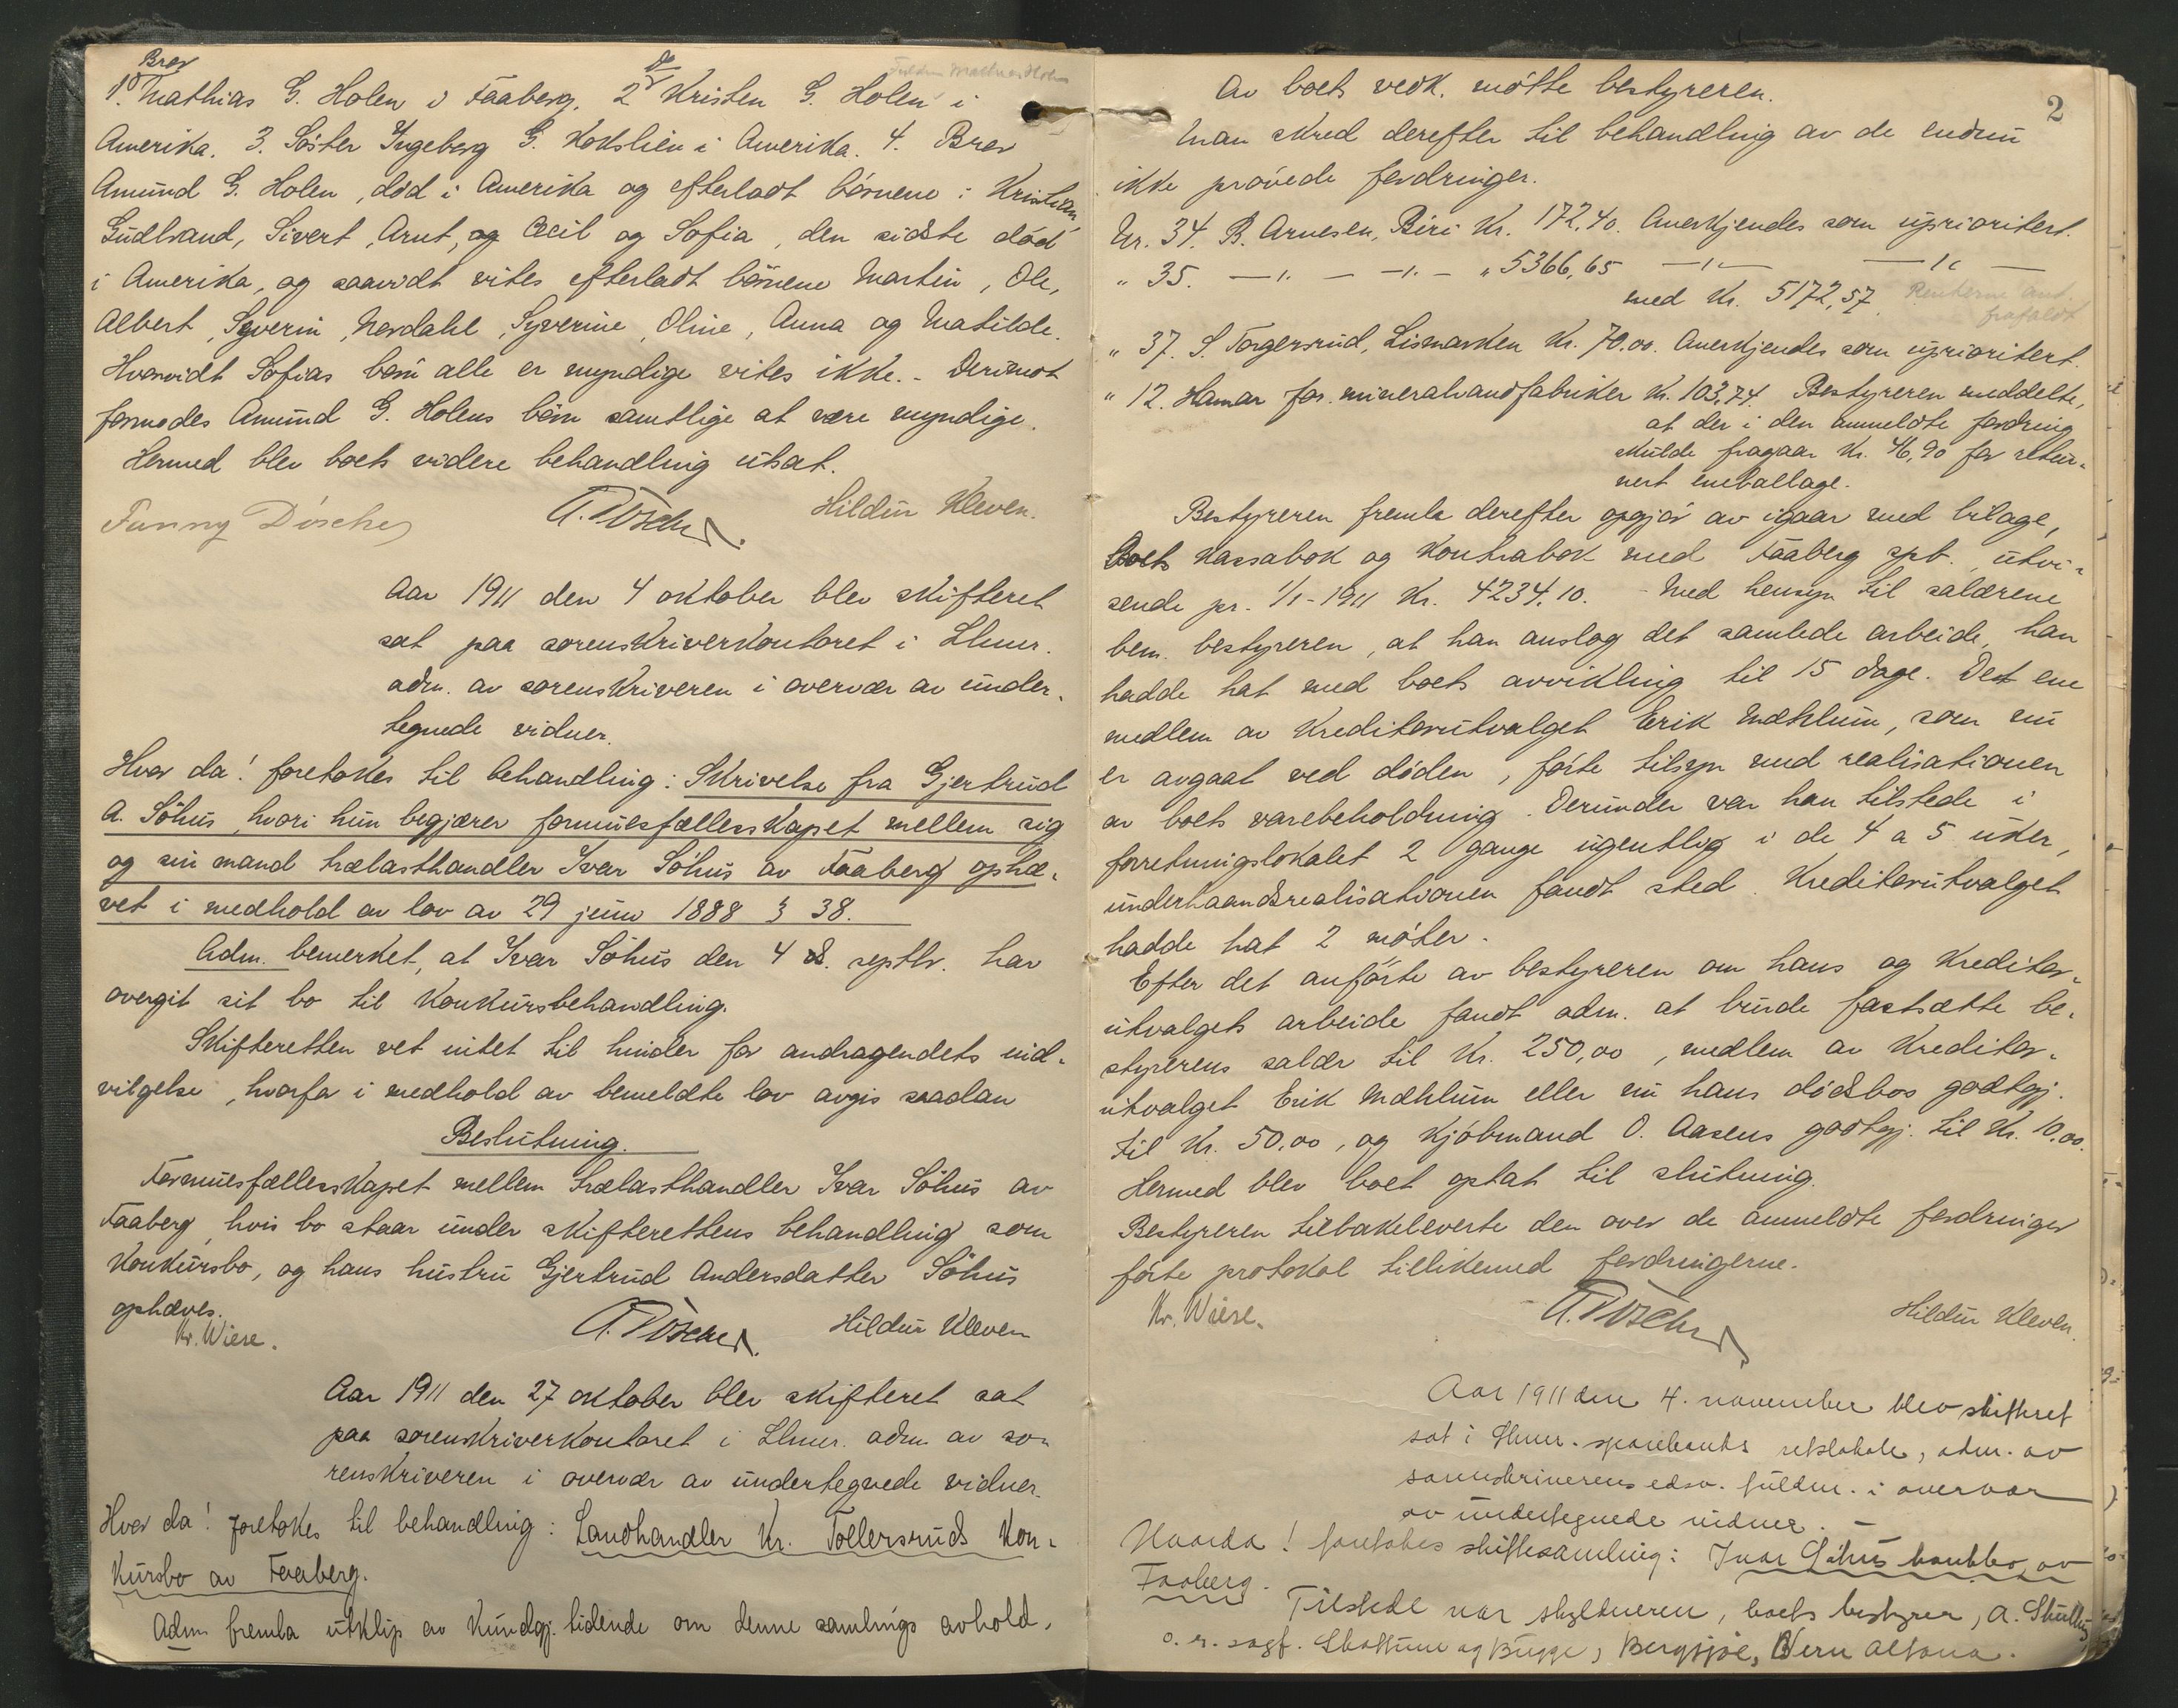 Bror do
1. Mathias G. Holen i Faaberg. 2 Kristen G. Holen i
Amerika. 3. Søster Ingeborg G. Kokslien i Amerika. 4. Bror
Amund G. Holen, död i Amerika og efterladt börnene: Kristian,
Gudbrand, Sivert, Arnt, og Cecil og Sofia, den sidste död
i Amerika, og saavidt vites efterladt börnene Martin, Ole,
Albert, Syverin, Nordahl, Syverine, Oline, Anna og Matilde.
Hvorvidt Sofias börn alle er myndige vites ikke. - Derimot
formodes Amund G. Holens börn samtlige at være myndige.
Hermed blev boets videre behandling utsat.
Fanny Dösche A. Dösche Hildur Kleven.
Aar 1911 den 4 oktober blev skifteret
sat paa sorenskriverkontoret i Lhmr.
adm. av sorenskriveren i overvær av under-
tegnede vidner.
Hvor da! foretokes til behandling: Skrivelse fra Gjertrud
A. Söhus, hvori hun begjærer formuesfællesskapet mellem sig
og sin mand trælasthandler Ivar Söhus av Faaberg ophæ-
vet i medhold av lov av 29 juni 1888 § 38.
Adm. bemerket, at Ivar Söhus den 4 d. septbr. har
overgit sit bo til konkursbehandling.
Skifteretten vet intet til hinder for andragendets ind-
vilgelse, hvorfor i medhold av bemeldte lov avgis saadan
Beslutning.
Formuesfællesskapet mellem trælasthandler Ivar Söhus av
Faaberg, hvis bo staar under skifterettens behandling som
konkursbo, og hans hustru Gjertrud Andersdatter Söhus
ophæves.
Kr. Wiese. A. Dösche Hildur Kleven
Aar 1911 den 27 oktober blev skifteret sat
paa sorenskriverkontoret i Lhmr. adm. av so-
renskriveren i overvær av undertegnede vidner.
Hvor da! foretokes til behandling: Landhandler Kr. Tollersruds kon-
kursbo av Faaberg.
Adm. fremla utklip av kundgj. tidende om denne samlings avhold.
2
Av boets vedk. mötte bestyreren.
Man skred derefter til behandling av de endnu
ikke prövede fordringer.
Nr. 34. B. Arnesen, Biri Kr. 172,40. Anerkjendes som uprioritert.
" 35. —"— —"— " 5366,65 —"— —"—
med Kr. 5172,57. Renterne ant. frafaldt
" 37. S. Torgersrud, Lismarken Kr. 70.00. Anerkjendes som uprioritert.
" 12. Hamar for. mineralvandfabriker Kr. 103,74. Bestyreren meddelte,
at der i den anmeldte fordring
skulde fragaar Kr. 46,90 for retur-
nert emballage.
Bestyreren fremla derefter opgjör av igaar med bilage,
boets kassabok og kontrabok med Faaberg spb., utvi-
sende pr. 1/1-1911 Kr. 4234.10. - Med hensyn til salærene
bem. bestyreren, at han anslog det samlede arbeide, han
hadde hat med boets avvikling til 15 dage. Det ene
medlem av kreditorutvalget Erik Mæhlum, som nu
er avgaat ved döden, förte tilsyn med realisationen
av boets varebeholdning. Derunder var han tilstede i
forretningslokalet 2 gange ugentlig i de 4 a 5 uker,
underhaandsrealisationen fandt sted. Kreditorutvalget
hadde hat 2 möter.
Efter det anförte av bestyreren om hans og kreditor-
utvalgets arbeide fandt adm. at burde fastsætte be-
styrerens salær til Kr. 250,00, medlem av kreditor-
utvalget Erik Mæhlum eller nu hans dödsbos godtgj.
til Kr. 50.00, og kjöbmand O. Aasens godtgj. til Kr. 10.00.
Hermed blev boet optat til slutning.
Bestyreren tilbakeleverte den over de anmeldte fordringer
förte protokol tillikemed fordringerne.
Kr. Wiese. A. Dösche Hildur Kleven.
Aar 1911 den 4. november blev skifteret
sat i Lhmr. sparebanks retslokale, adm. av
sorenskriverens edsv. fuldm. i overvær
av undertegnede vidner.
Hvorda! foretokes skiftesamling: Ivar Söhus konkbo, av
Faaberg.
Tilstede var skyldneren, boets bestyrer, A.
o. r. sagf. og Bugge, Bergsjöe,